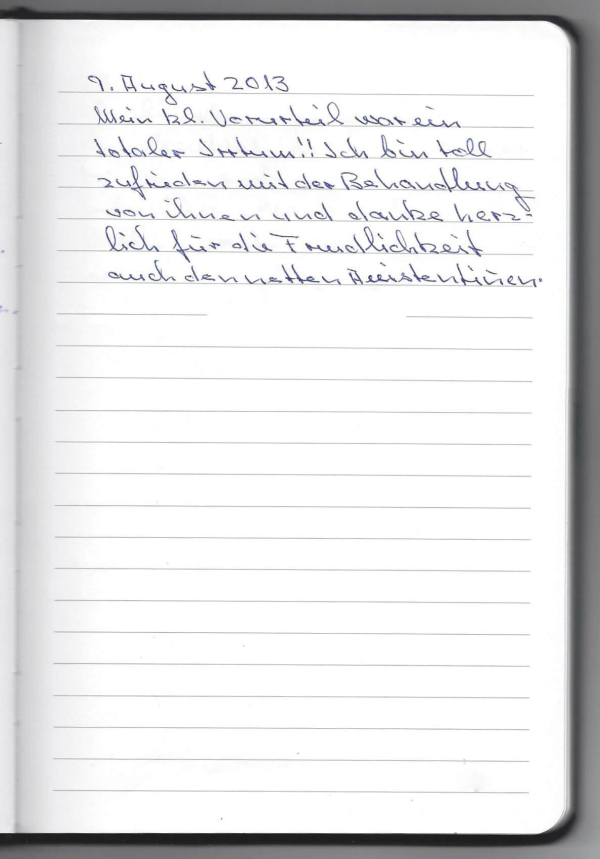 9. August 2013
Mein kl. Vorurteil war ein
totaler Irrtum!! Ich bin toll
zufrieden mit der Behandlung
von ihnen und danke herz-
lich für die Freudlichkeit
auch den netten Assistentinen.